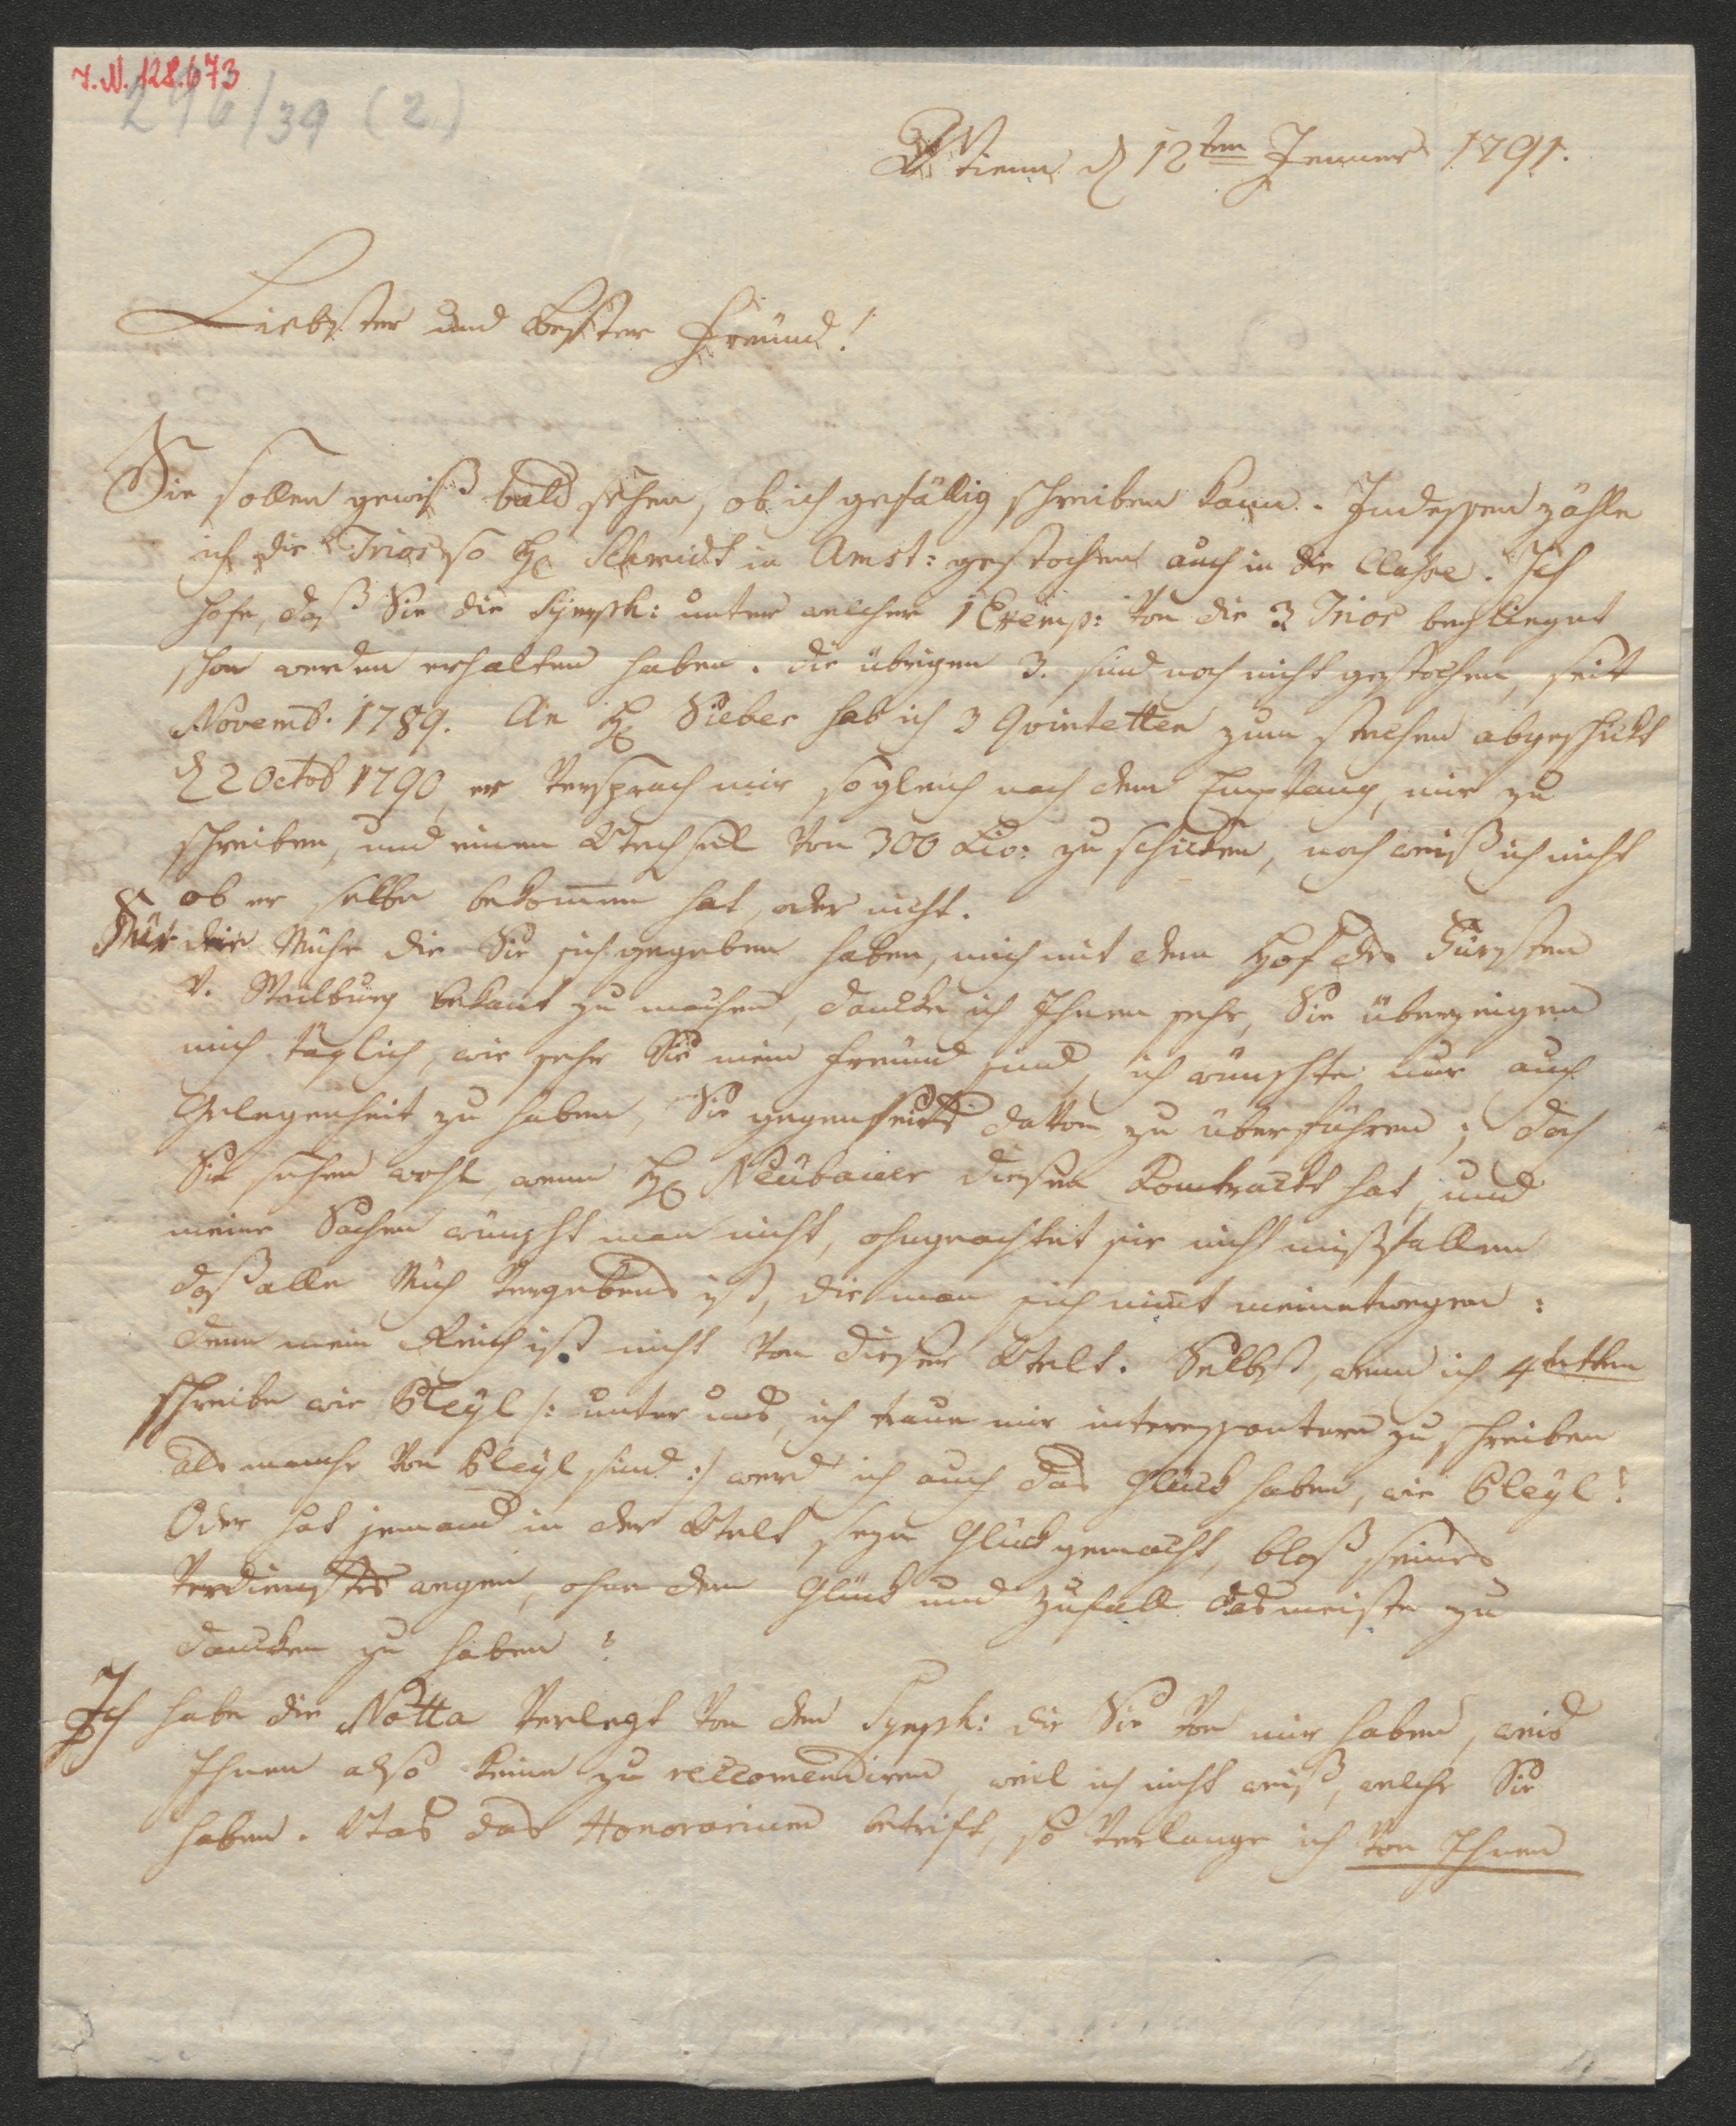 I.N. 128.673
296/39 (2)
Wienn d 12ten Jenner 1791.
Liebster und bester Freünd!
Sie sollen gewiß bald sehen, ob ich gefällig schreiben kann. Indessen zähle
ich die Trios so H: Schmidt in Amst: gestochen auch in die Classe. Ich
hofe, daß Sie die Symph: unter welcher 1 Exemp: von die 3 Trios beyliegut
schon werden erhalten haben. die übrigen 3. sind noch nicht gestochen, seit
Novemb. 1789. An H: Sieber hab ich 3 Quintetten zum stechen abgeschickt
d 2 Octob 1790, er versprach mir sogleich nach dem Empfang, mir zu
schreiben, und einen Wechsel von 300 Liv: zu schicken, noch weiß ich nicht
ob er selbe bekommen hat, oder nicht.
Für die Mühe die Sie sich gegeben haben, mich mit dem Hof des Fürsten
v. Weilburg bekant zu machen, dancke ich Ihnen sehr, Sie überzeigen
mich täglich, wie sehr Sie mein Freünd sind, ich wünschte nur auch
Gelegenheit zu haben, Sie gegenseits davon zu überführen; doch
Sie sehen wohl, wenn H: Neübauer diesen Contrackt hat, und
meine Sachen wünscht man nicht, ohngeachtet sie nicht mißfallen
daß alle Müh vergebens ist, die man sich nimt meinetwegen:
denn mein Reich ist nicht von dieser Welt. Selbst, wenn ich 4tetten
schreibe wie Pleyl /: unter uns, ich traue mir interessantere zu schreiben
als manche von Pleyl sind :/ werd ich auch das Glück haben, wie Pleyl?
Oder hat jemand in der Welt sein Glück gemacht, bloß seines
Verdienstes wegen, ohne dem Glück und Zufall das meiste zu
dancken zu haben?
Ich habe die Notta verlegt von den Symph: die Sie von mir haben, weis
Ihnen also keine zu reccomendiren, weil ich nicht weiß, welche Sie
haben. Was das Honorarium betrift, so verlange ich von Ihnen